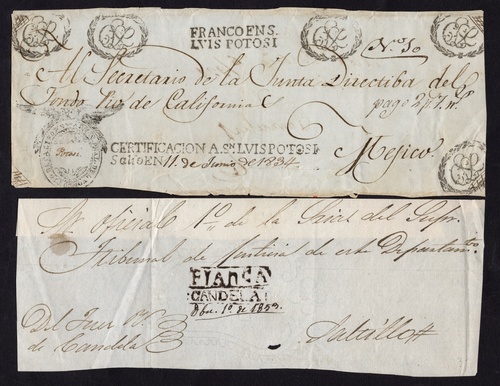 FRANCO EN S.
LVIS POTOSI
Al Secretario de la Junta Directiba del
Fondo de California
pago
CERTIFICACION A Sn LVIS POTOSI
Salio EN 11 de Junio de 1834
Mejico.
Al oficial 1o de la del Supr.
Tribunal de Justicia de este Departamto
FIANCA
CANDELA
1o de 1853.
Del Juez
de Candela
Saltillo